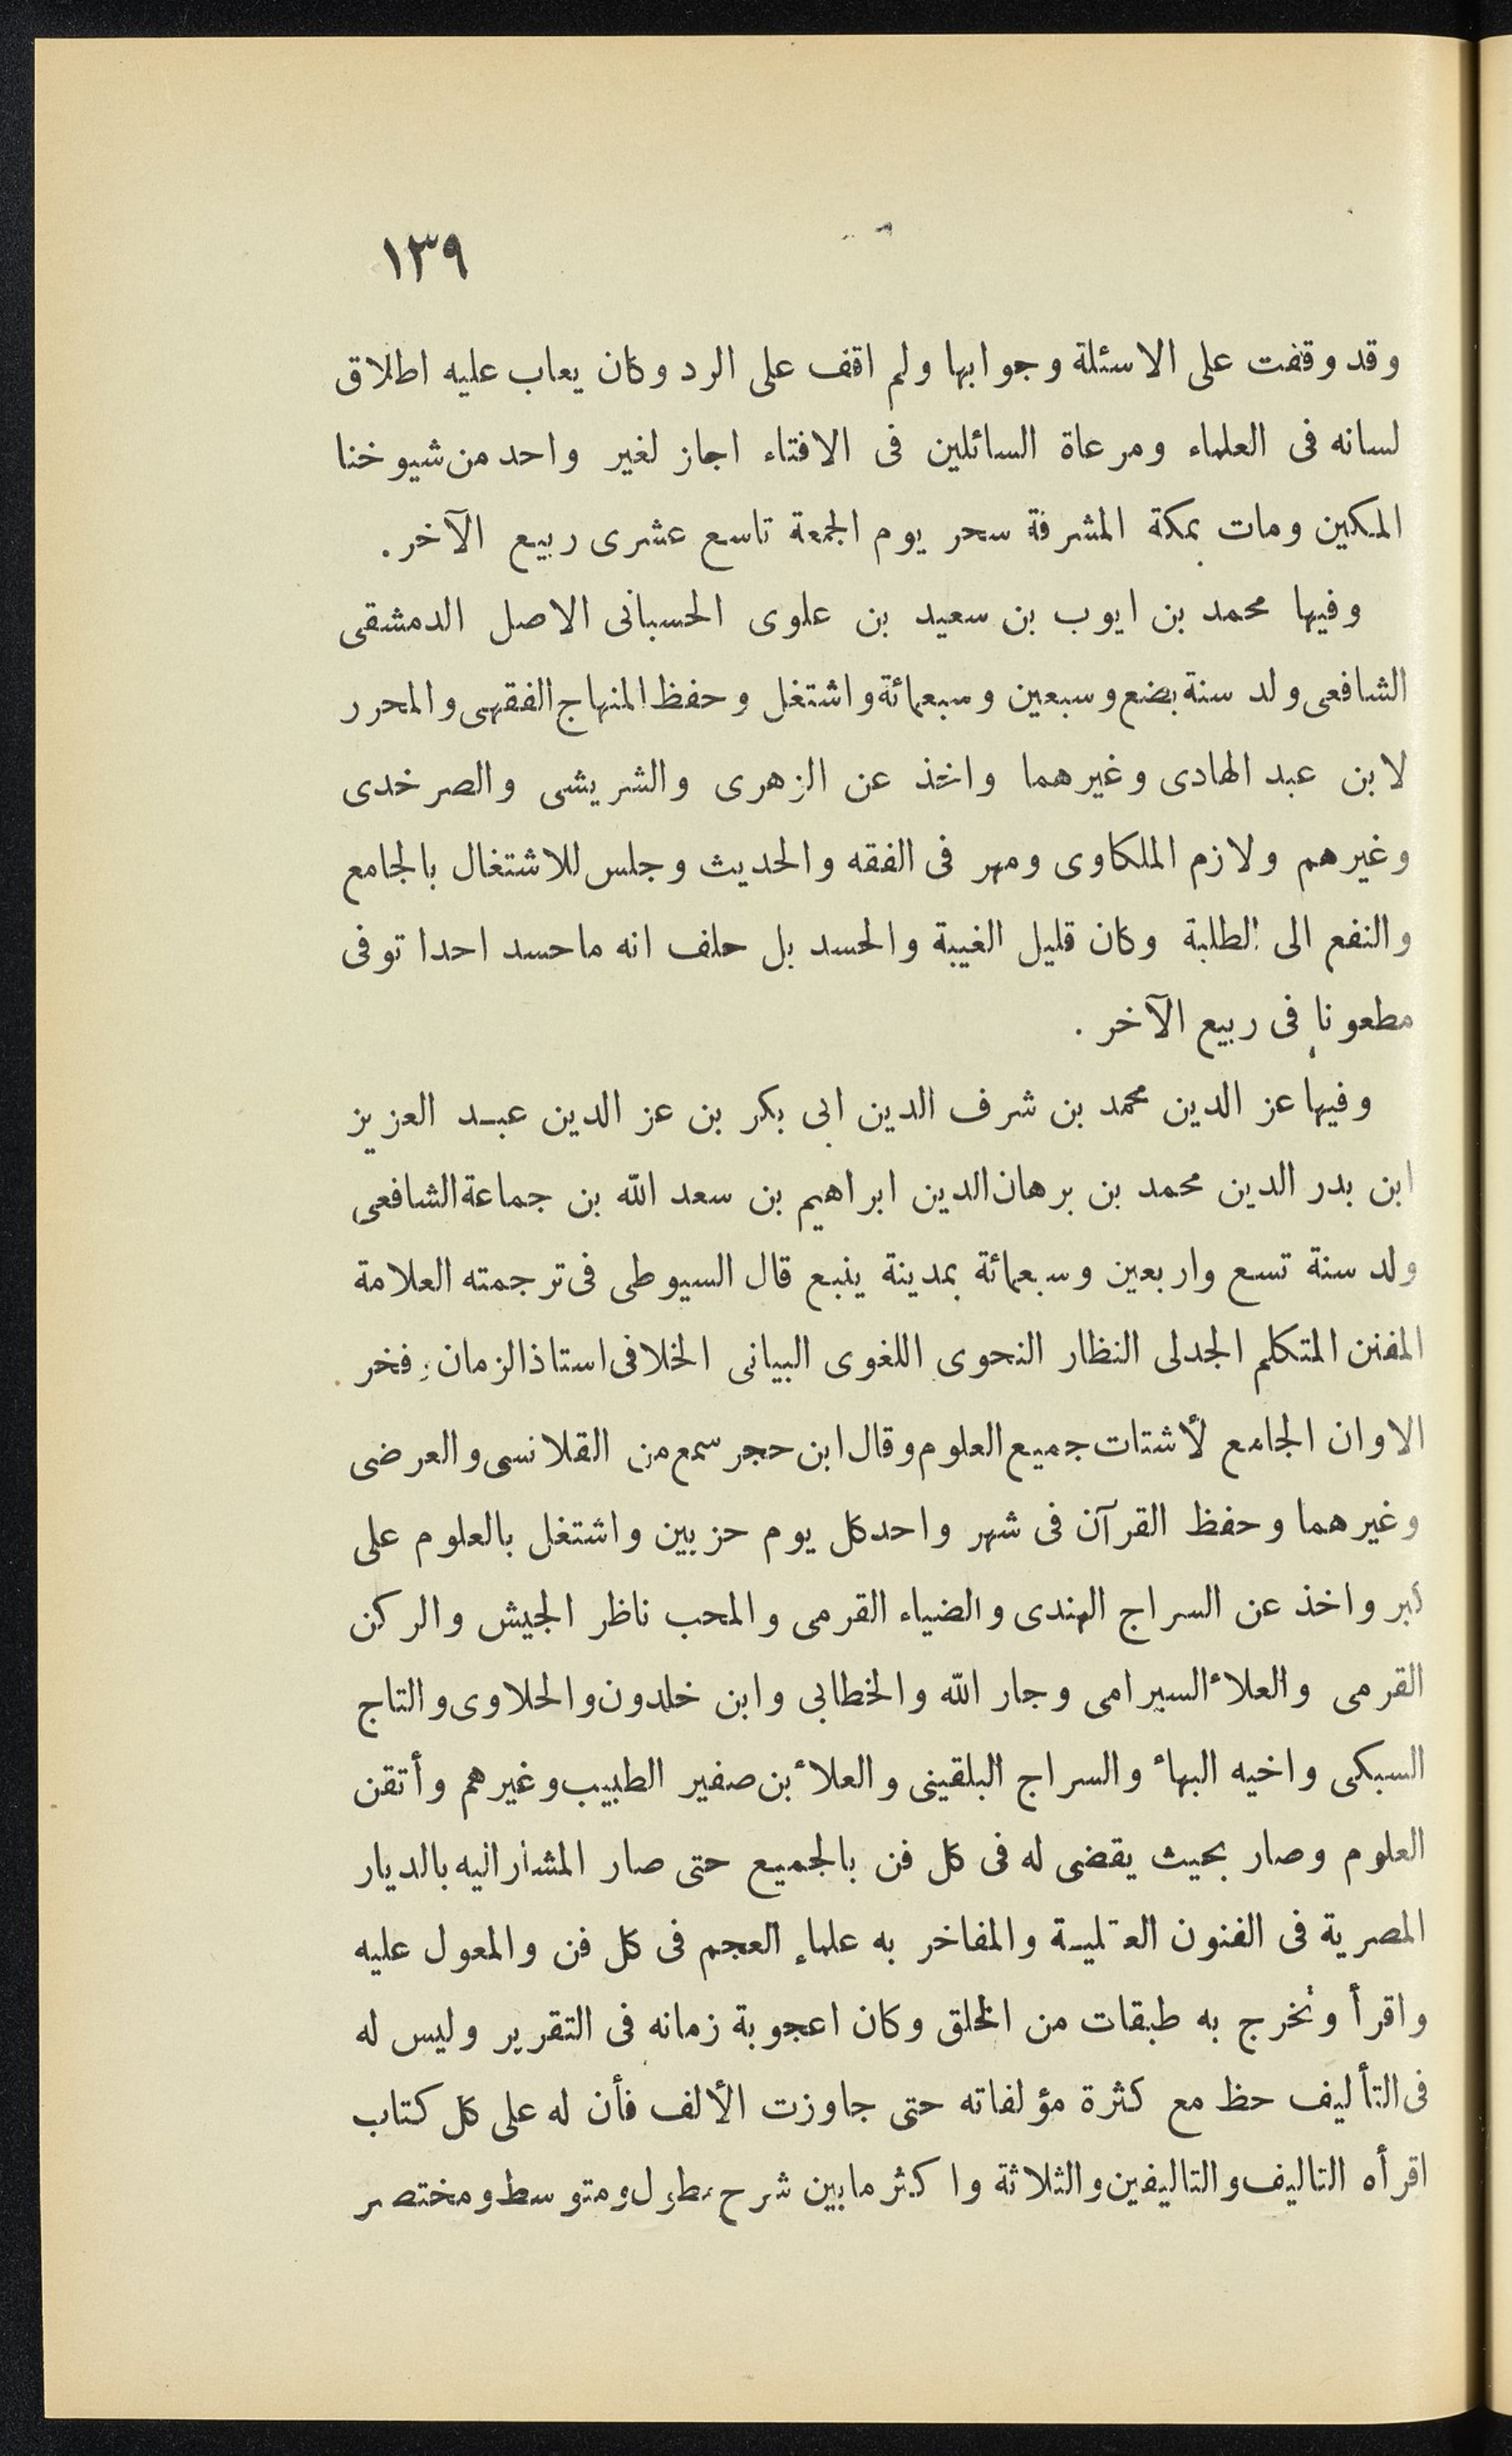 ١٣٩
وقد وقفت على الاسئلة وجوابها ولم اقف على الرد وكان يعاب عليه اطلاق
لسانه فى العلماء ومرعاة السائلين فى الافتاء اجاز لغير واحد من شيوخنا
المكين ومات بمكة المشرفة سحر يوم الجمعة تاسع عشرى ربيع الآخر .
وفيها محمد بن ايوب بن سعيد بن علوى الحسبانى الاصل الدمشقى
الشافعى ولد سنة بضع وسبعين وسبعمائة واشتغل وحفظ المنهاج الفقهى والمحرر
لابن عبد الهادى وغيرهما واخذ عن الزهرى والشريشى والصرخدى
وغيرهم ولازم الملكاوى ومهر فى الفقه والحديث وجلس للاشتغال بالجامع
والنفع الى الطلبة وكان قليل الغيبة والحسد بل حلف انه ماحسد احدا توفى
مطعونا فى ربيع الآخر .
وفيها عز الدين محمد بن شرف الدين ابى بكر بن عز الدين عبد العزيز
ابن بدر الدين محمد بن برهان الدين ابراهيم بن سعد الله بن جماعة الشافعى
ولد سنة تسع واربعين وسبعمائة بمدينة ينبع قال السيوطى فى ترجمته العلامة
المفنن المتكلم الجدلى النظار النحوى اللغوى البيانى الخلافى استاذ الزمان فخر
الاوان الجامع لأشتات جميع العلوم وقال ابن حجر سمع من القلانسى والعرضى
وغيرهما وحفظ القرآن فى شهر واحد كل يوم حزبين واشتغل بالعلوم على
كبر واخذ عن السراج الهندى والضياء القرمى والمحب ناظر الجيش والركن
القرمى والعلاء السيرامى وجار الله والخطابى وابن خلدون والحلاوى والتاج
السبكى واخيه البهاء والسراج البلقينى والعلاء بن صفير الطبيب وغيرهم وأتقن
العلوم وصار بحيث يقضى له فى كل فن بالجميع حتى صار المشار اليه بالديار
المصرية فى الفنون العقلية والمفاخر به علماء العجم فى كل فن والمعول عليه
واقرأ وتخرج به طبقات من الخلق وكان اعجوبة زمانه فى التقرير وليس له
فى التأليف حظ مع كثرة مؤلفاته حتى جاوزت الألف فأن له على كل كتاب
اقرأه التاليف والتاليفين والثلاثة واكثر مابين شرح مطول ومتوسط ومختصر